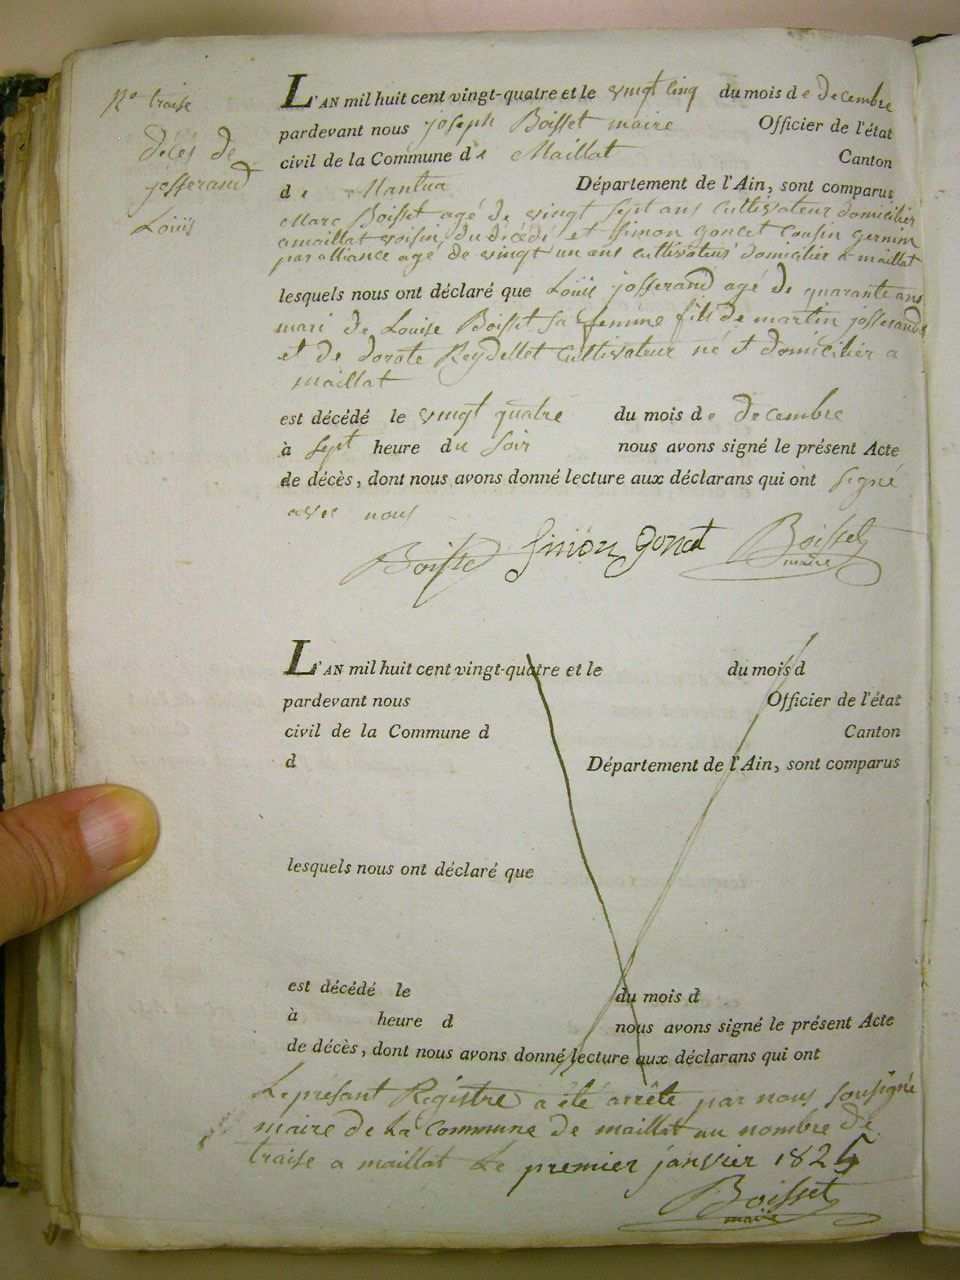 No traise
décès de
josserand
Loüis
L'AN mil huit cent vingt-quatre et le vingt cinq du mois de decembre
pardevant nous joseph Boisset maire Officier de l'état
civil de la Commune de Maillat Canton
de Nantua Département de l'Ain, sont comparus
Marc Boisset agé de vingt sept ans cultivateur domicilier
a maillat voisin du dicédé et Simon goncet cousin germin
par alliance agé de vingt un ans cultivateur domicilier a maillat
lesquels nous ont déclaré que Loüis josserand agé de quarante ans
mari de Louise Boisset sa femme fils de martin josserand
et de dorote Reydellet cultivateur né et domicilier a
maillat
est décédé le vingt quatre du mois de decembre
à sept heure du soir nous avons signé le présent Acte
de décès, dont nous avons donné lecture aux déclarans qui ont signé
avec nous
Boisset Simon goncet Boisset
maire
L'AN mil huit cent vingt-quatre et le du mois d
pardevant nous Officier de l'état
civil de la Commune d Canton
d Département de l'Ain, sont comparus
lesquels nous ont déclaré que
est décédé le du mois d
à heure d nous avons signé le présent Acte
de décès, dont nous avons donné lecture aux déclarans qui ont
Le présant Régistre a été arrêté par nous sousigné
maire de La Commune de maillat au nombre de
traise a maillat Le premier janvier 1825
Boisset
maire